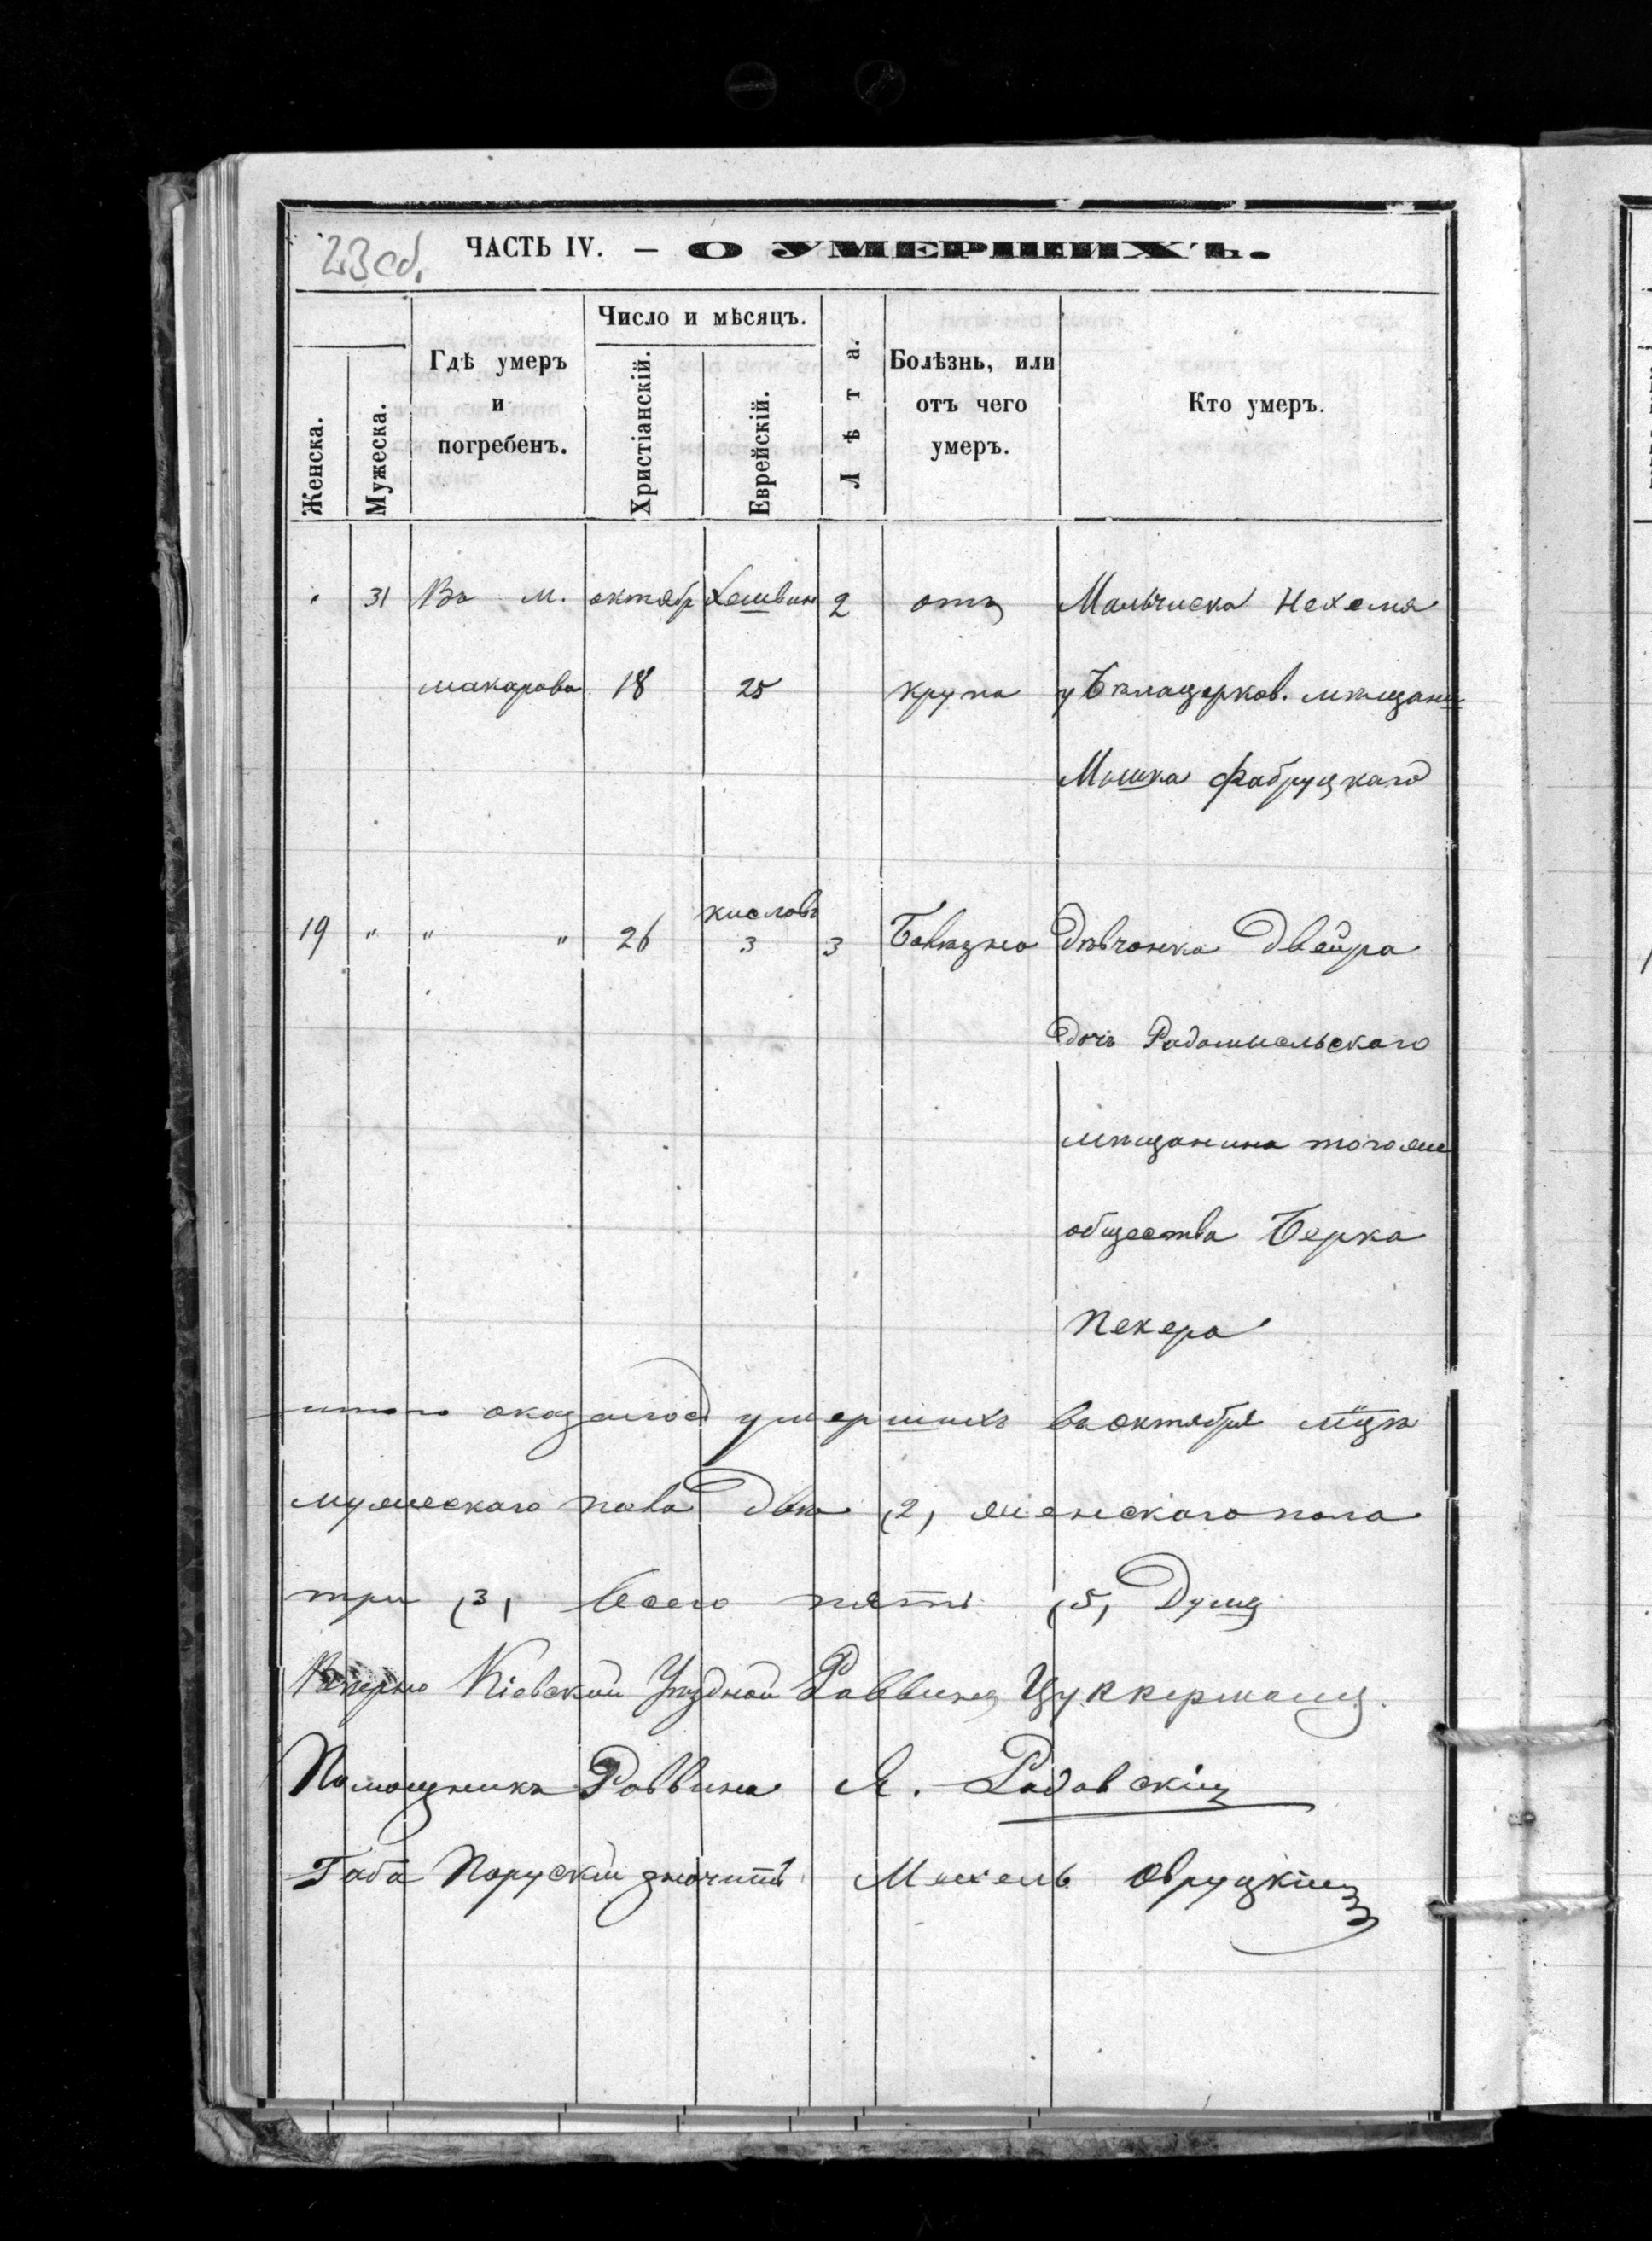 23об.
ЧАСТЬ IV. — О УМЕРШИХЪ.
Женска.
Мужеска.
Гдѣ умеръ и погребенъ.
Число и мѣсяцъ.
Христіанскій.
Еврейскій.
Лѣта.
Болѣзнь, или отъ чего умеръ.
Кто умеръ.
31 Въ м. октябр Хешван 2 отъ Мальчиска Нехемя
макарова 18 25 крупа у Бѣлацерков. мѣщани
Мошка Фабруцкаго
кислевъ
19 " " " 26 3 3 дѣвчонка Двейра
дочь Радомисльскаго
мѣщанина того же
общества Берка
Пекера
итого оказалось умершихъ въ октябрѣ мцѣ
мужескаго пола два (2) женскаго пола
три (3) всего пять (5) Душъ
Вѣрно Кіевскій Уѣздной Раввинъ Цуккерманъ.
Помощникъ Раввина Я. Радовскій
Габа Мехель Овруцкій